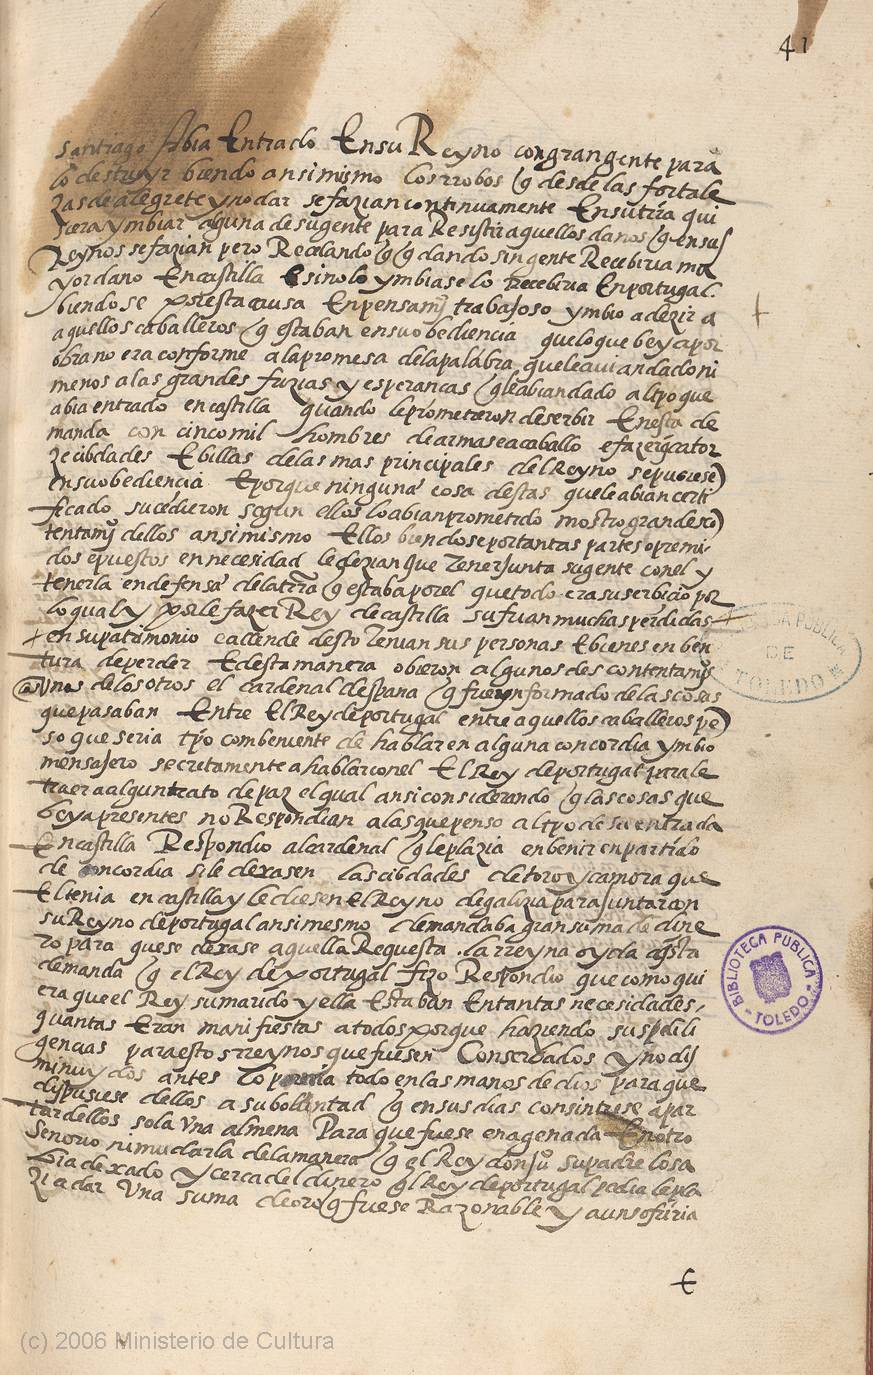 41
santiago Abia Entrado En su Reyno con gran gente para
lo destruyr biendo ansi mismo los rrobos q desde las fortale
zas de alegrete y nodar se fazian continuamente En su trra qui
siera ymbiar alguna de su gente para Resistir aquellos danos q en sus
Reynos se fazian pero Recelando q quedando sin gente Recebiria ma
yor dano En castilla E si no lo ymbiase lo recebiria En portugal
biendo se por esta causa En pensamjo trabajoso ymbio a dezir a
aquellos caballeros q estaban en su obediencia que lo que beya por
obra no era conforme a la promesa de la palabra que le avian dado ni
menos a las grandes fuzias y esperancas q le abian dado al tpo que
abia entrado en castilla quando le prometieron de serbir En esta de
manda con cinco mil hombres de armas e a caballo e fazer q cator
ze cibdades E billas de las mas principales del Reyno se pusiese
en su obediencia E porque ninguna cosa destas que le abian certi
ficado sucedieron segun ellos lo abian prometido mostro grande sco
tentamjo dellos ansi mismo Ellos biendose por tantas partes opremi
dos e puestos en necesidad le dezian que tener junta su gente con el y
tenerla en defensa de la trra q estaba por el que todo era su serbicio por
lo qual y por le fazer Rey de castilla sufrian muchas perdidas
en su patrimonio e allende desto tenian sus personas E bienes en ben
tura de perder E desta manera obieron algunos descontentamjos
Unos de los otros el cardenal despana q fue ynformado de las cosas
que pasaban Entre El Rey de portugal entre aquellos caballeros pe
so que seria tpo combeniente de hablar en alguna concordia ymbio
mensajero secretamente a hablar con el El Rey de portugal para le
traer a algun trato de paz el qual ansi considerando q las cosas que
beya presentes no Respondian a las que penso al tpo de su entrada
En castilla Respondio al cardenal q le plazia en benir en partido
de concordia si le dexasen las cibdades de toro y camora que
El tenia en castilla y le diesen el Reyno de galizia para juntar con
su Reyno de portugal ansi mesmo demandaba gran suma de dine
ro para que se dexase aquella Requesta. la rreyna oyda esta
demanda q el Rey de portugal fizo Respondio que como qui
era que el Rey su marido y ella Estaban En tantas necesidades,
quantas Eran manifiestas a todos porque haziendo sus deli
gencias para estos rreynos que fuesen Conserbados y no dis
minuydos antes lo todo en las manos de dios para que
dispusiese dellos a su boluntad q en sus dias consintiese apar
tar dellos sola una almena Para que fuese enagenada En otro
senorio ni mudarla de la manera q el Rey don ju su padre lo sa
bia dexado y cerca del dinero q l Rey de portugal pedia le pla
zia dar Una suma de oro q fuese Razonable y aun sofriria
E
BIBLIOTECA PUBLICA
DE
TOLEDO
BIBLIOTECA PUBLICA
TOLEDO
(c) 2006 Ministerio de Cultura